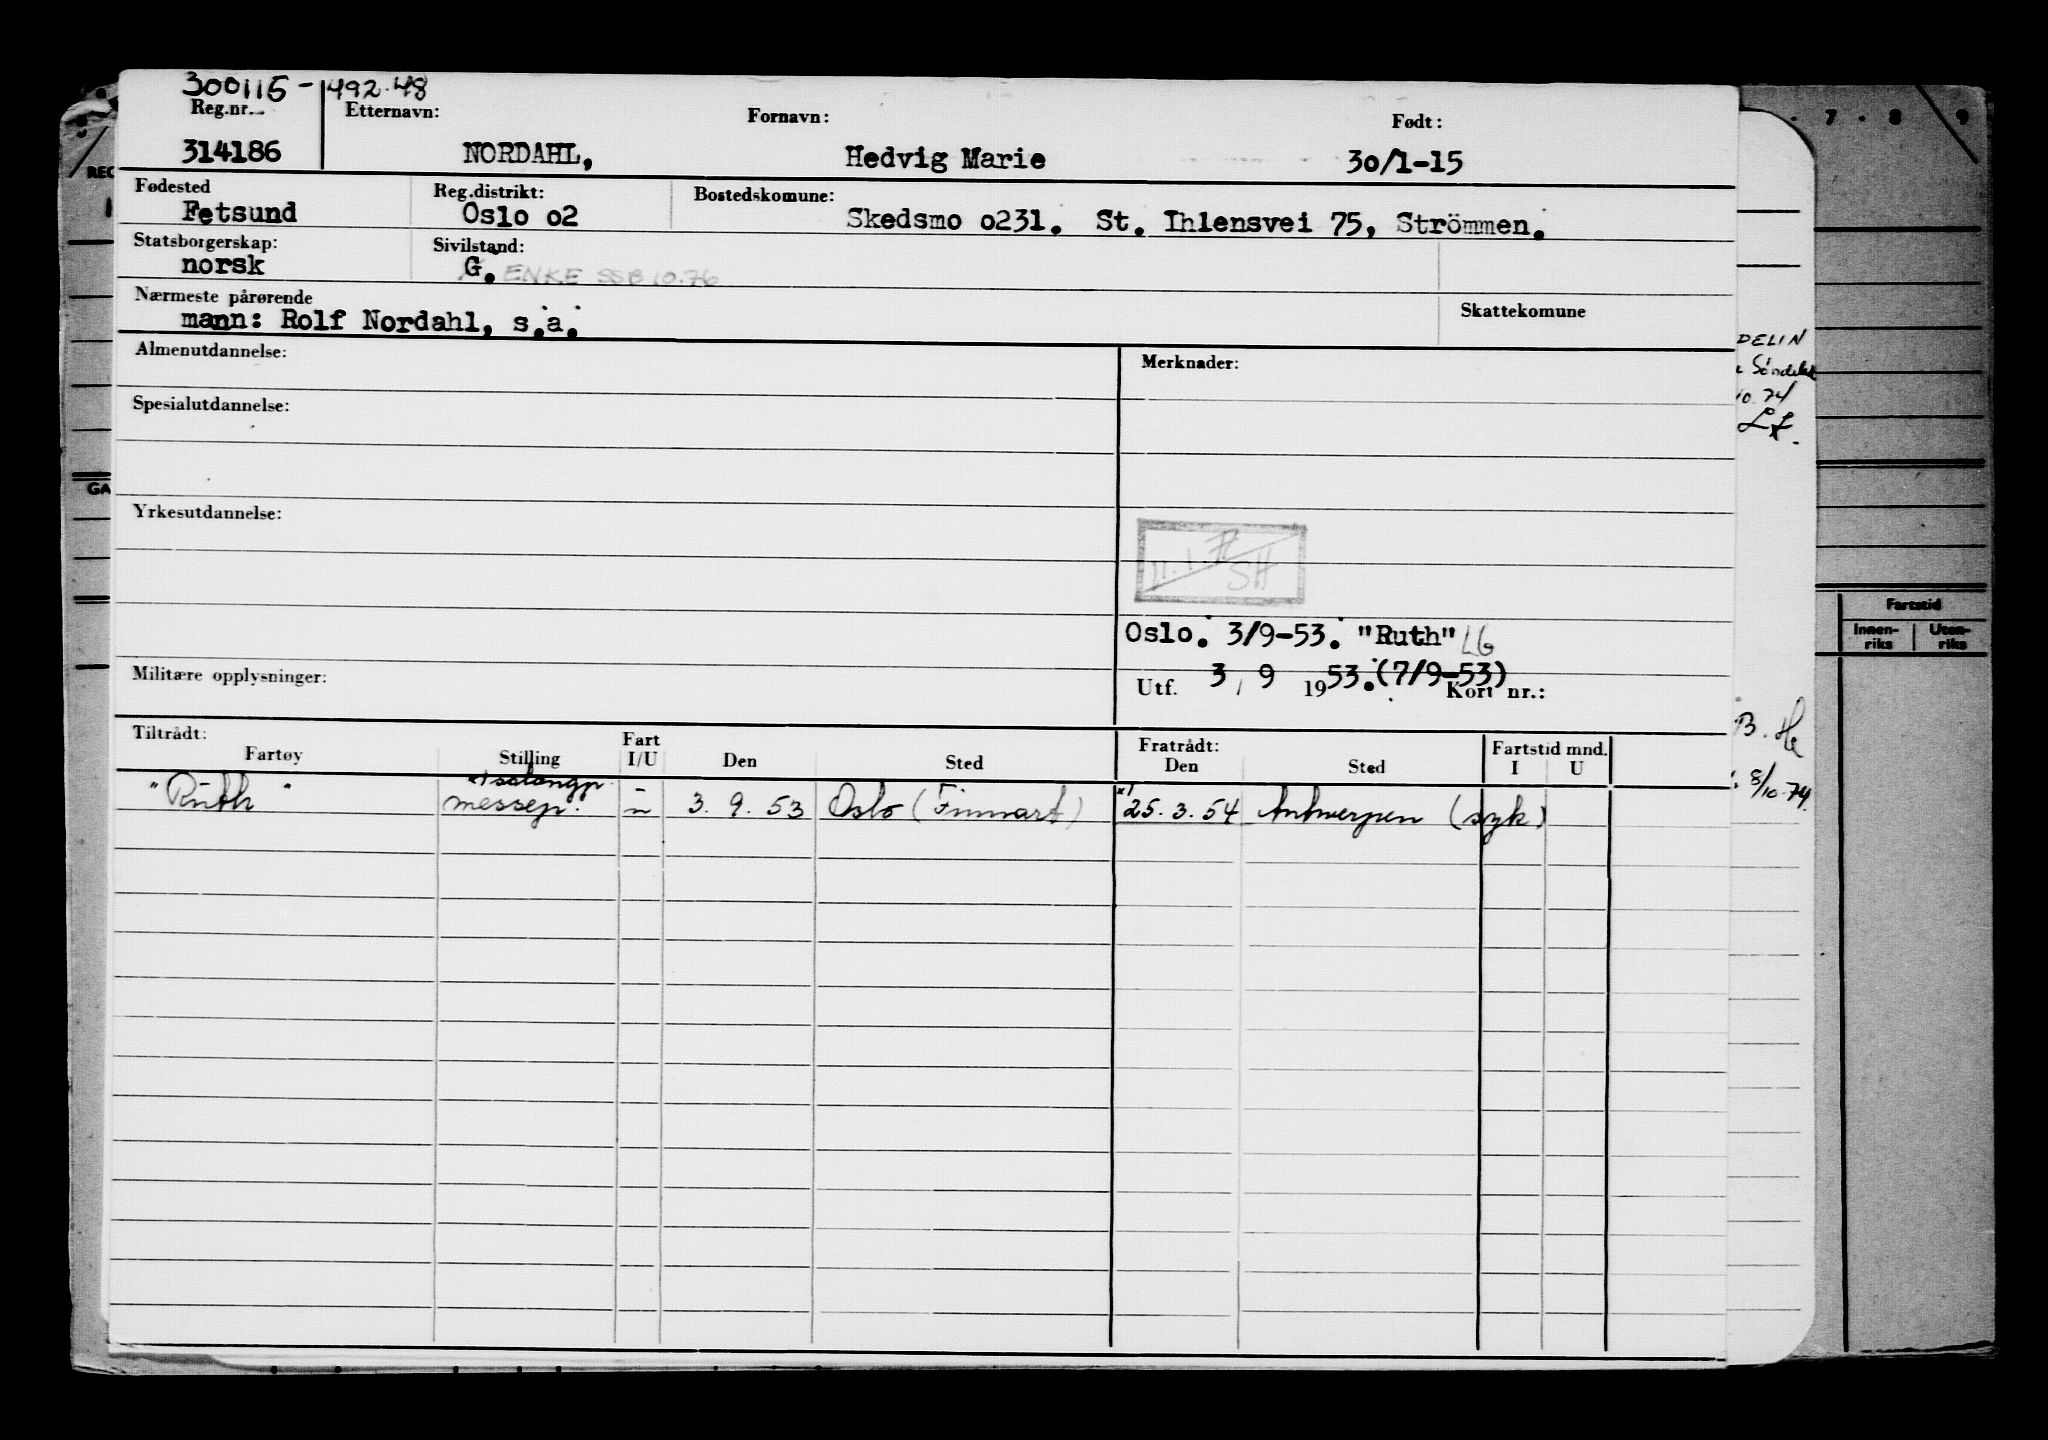 300115-49248
Reg.nr. Etternavn: Fornavn: Født:
314186 NORDAHL, Hedvig Marie 30/1-15
Fødested Reg.distrikt: Bostedskomune:
Fetsund Oslo o2 Skedsmo o231. St. Ihlensvei 75, Strömmen.
Statsborgerskap: Sivilstand:
norsk G. ENKE SSB 10.76
Nærmeste pårørende Skattekomune
mann: Rolf Nordahl, s.a.
Almenutdannelse: Merknader:
Spesialutdannelse:
Yrkesutdannelse:
SH
Oslo. 3/9-53. "Ruth" LG
Militære opplysninger: Utf. 3 / 9 1953. (7/9-53) Kort nr.:
Tiltrådt: Fratrådt: Fartstid mnd.
Fartøy Stilling Fart I/U Den Sted Den Sted I U
x) salongp.
"Ruth" messep. u 3.9.53 Oslo (Finnart) x) 25.3.54 Antwerpen (syk)
7 8 9
REG
GA
DELIN
10.74
B. He
8/10.74
Fartstid
Innen-riks Uten-riks